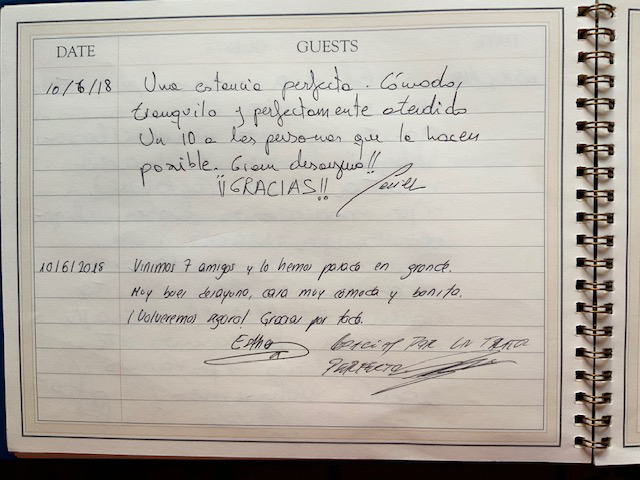 DATE GUESTS
10/6/18 Una estancia perfecta. Cómodo,
tranquilo y perfectamente atendido
Un 10 a las personas que lo hacen
posible. Gran desayuno!!
¡¡GRACIAS!!
10/6/2018 Vinimos 7 amigos y lo hemos pasado en grande.
Muy buen desayuno, casa muy cómoda y bonita.
¡Volveremos seguro! Gracias por todo.
Esther GRACIAS POR UN TRATO
PERFECTO